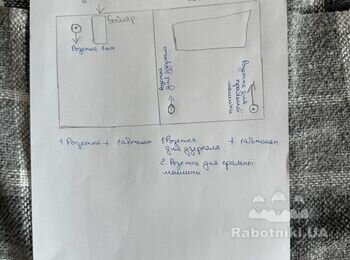 Бойлер
Розетка 1шт
Розетка
для дзеркала
Розетка для
пральної
машини
1 Розетка + 1 автомат
1 Розетка
для дзеркала + 1 автомат
2. Розетка для пральної
машини
Rabotniki.UA